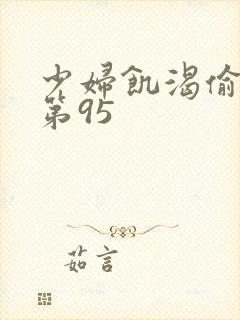 少婦飢渴偷
第95
茹言